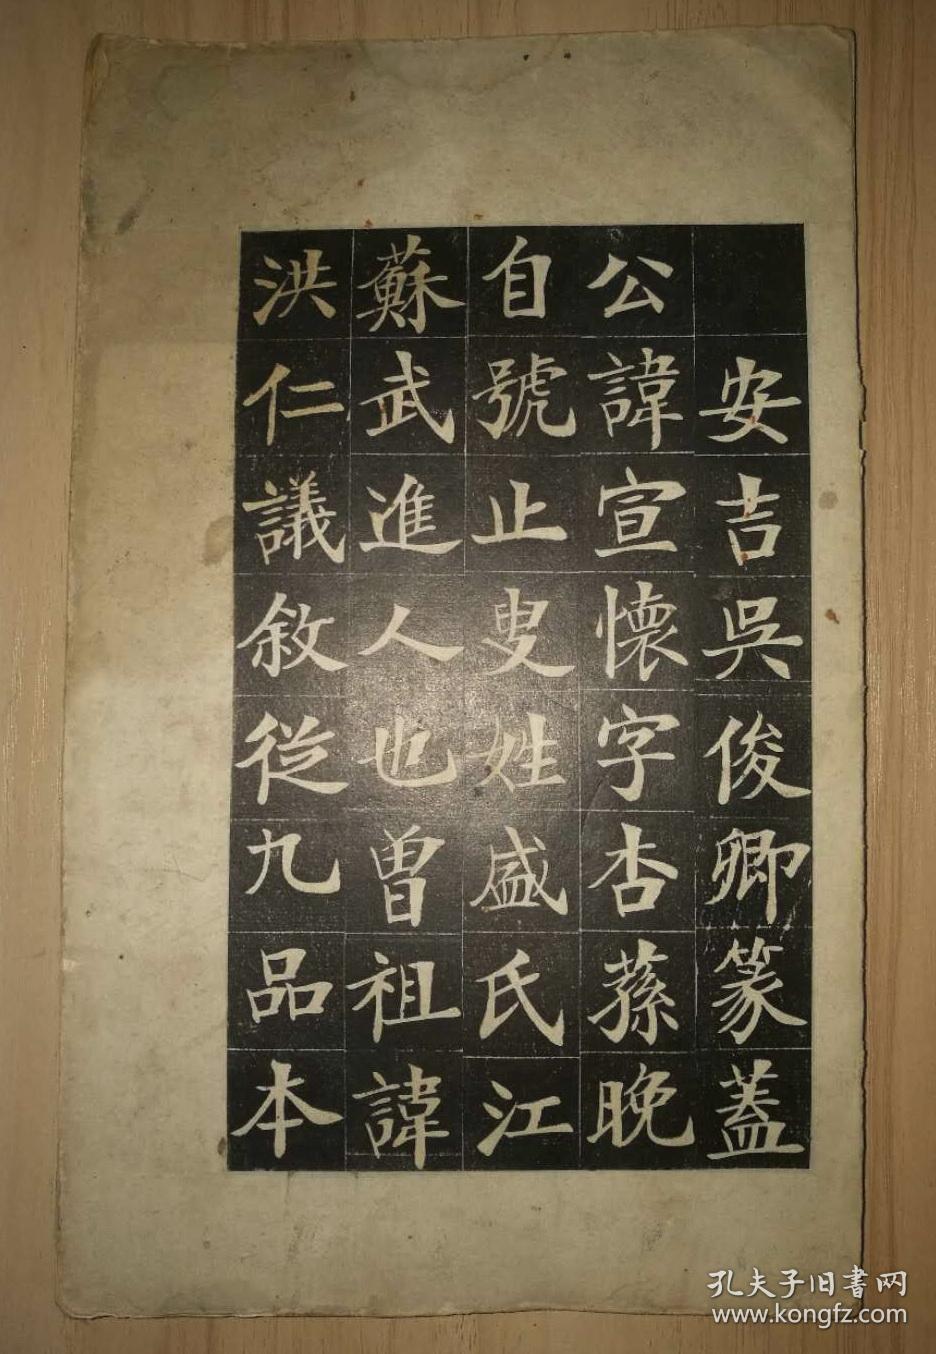 安吉吳俊卿篆蓋
公諱宣懷字杏蓀晚
自號止叟姓盛氏江
蘇武進人也曾祖諱
洪仁議敘從九品本
孔夫子旧書网
www.kongfz.com